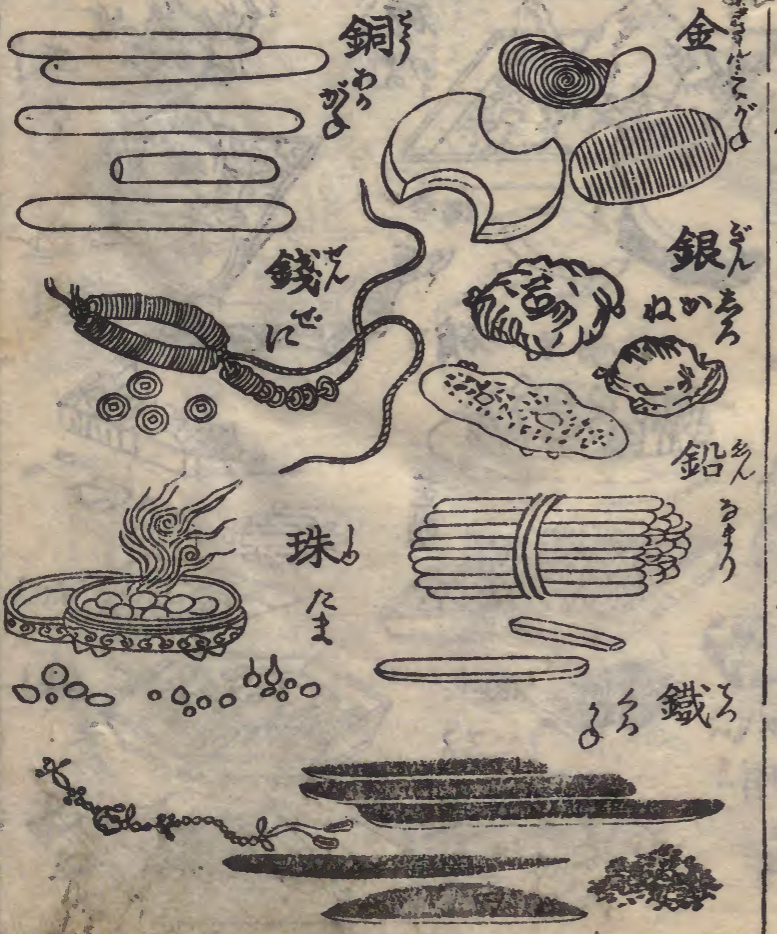 金
こがね
銀 ぎん
しろかね
鉛 えん
なまり
鐵 てつ
くろがね
銅 とう
あかがね
錢 せん
ぜに
珠 しゆ
たま